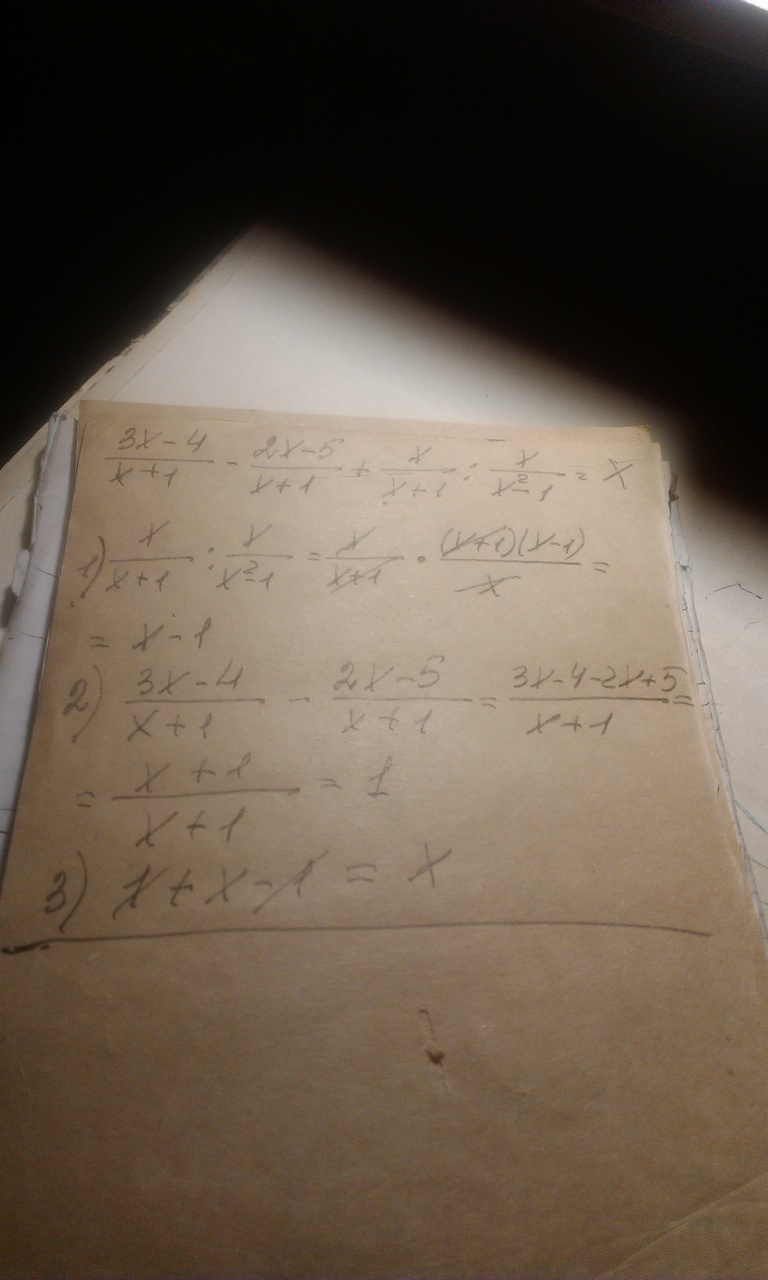 (3x-4)/(x+1) - (2x-5)/(x+1) + x/(x+1) : x/(x²-1) = x
1) x/(x+1) : x/(x²-1) = x/(x+1) · (x+1)(x-1)/x =
= x-1
2) (3x-4)/(x+1) - (2x-5)/(x+1) = (3x-4-2x+5)/(x+1) =
= (x+1)/(x+1) = 1
3) 1+x-1 = x